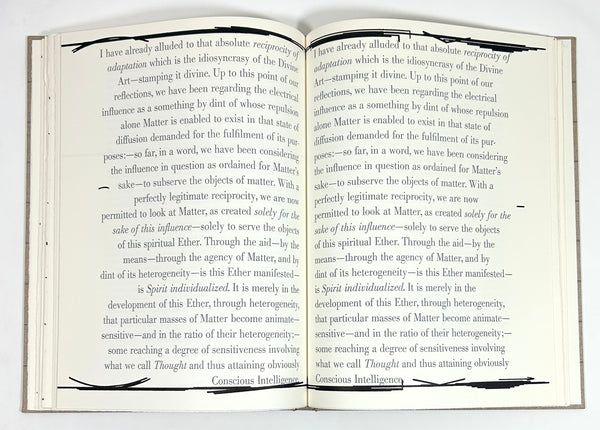 I have already alluded to that absolute reciprocity of
adaptation which is the idiosyncrasy of the Divine
Art—stamping it divine. Up to this point of our
reflections, we have been regarding the electrical
influence as a something by dint of whose repulsion
alone Matter is enabled to exist in that state of
diffusion demanded for the fulfilment of its pur-
poses:—so far, in a word, we have been considering
the influence in question as ordained for Matter's
sake—to subserve the objects of matter. With a
perfectly legitimate reciprocity, we are now
permitted to look at Matter, as created solely for the
sake of this influence—solely to serve the objects
of this spiritual Ether. Through the aid—by the
means—through the agency of Matter, and by
dint of its heterogeneity—is this Ether manifested—
is Spirit individualized. It is merely in the
development of this Ether, through heterogeneity,
that particular masses of Matter become animate—
sensitive—and in the ratio of their heterogeneity;—
some reaching a degree of sensitiveness involving
what we call Thought and thus attaining obviously
Conscious Intelligence
I have already alluded to that absolute reciprocity of
adaptation which is the idiosyncrasy of the Divine
Art—stamping it divine. Up to this point of our
reflections, we have been regarding the electrical
influence as a something by dint of whose repulsion
alone Matter is enabled to exist in that state of
diffusion demanded for the fulfilment of its pur-
poses:—so far, in a word, we have been considering
the influence in question as ordained for Matter's
sake—to subserve the objects of matter. With a
perfectly legitimate reciprocity, we are now
permitted to look at Matter, as created solely for the
sake of this influence—solely to serve the objects
of this spiritual Ether. Through the aid—by the
means—through the agency of Matter, and by
dint of its heterogeneity—is this Ether manifested—
is Spirit individualized. It is merely in the
development of this Ether, through heterogeneity,
that particular masses of Matter become animate—
sensitive—and in the ratio of their heterogeneity;—
some reaching a degree of sensitiveness involving
what we call Thought and thus attaining obviously
Conscious Intelligence